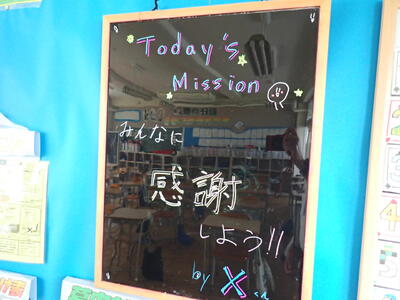 Today's
Mission
みんなに
感謝
しよう!!
by Xくん